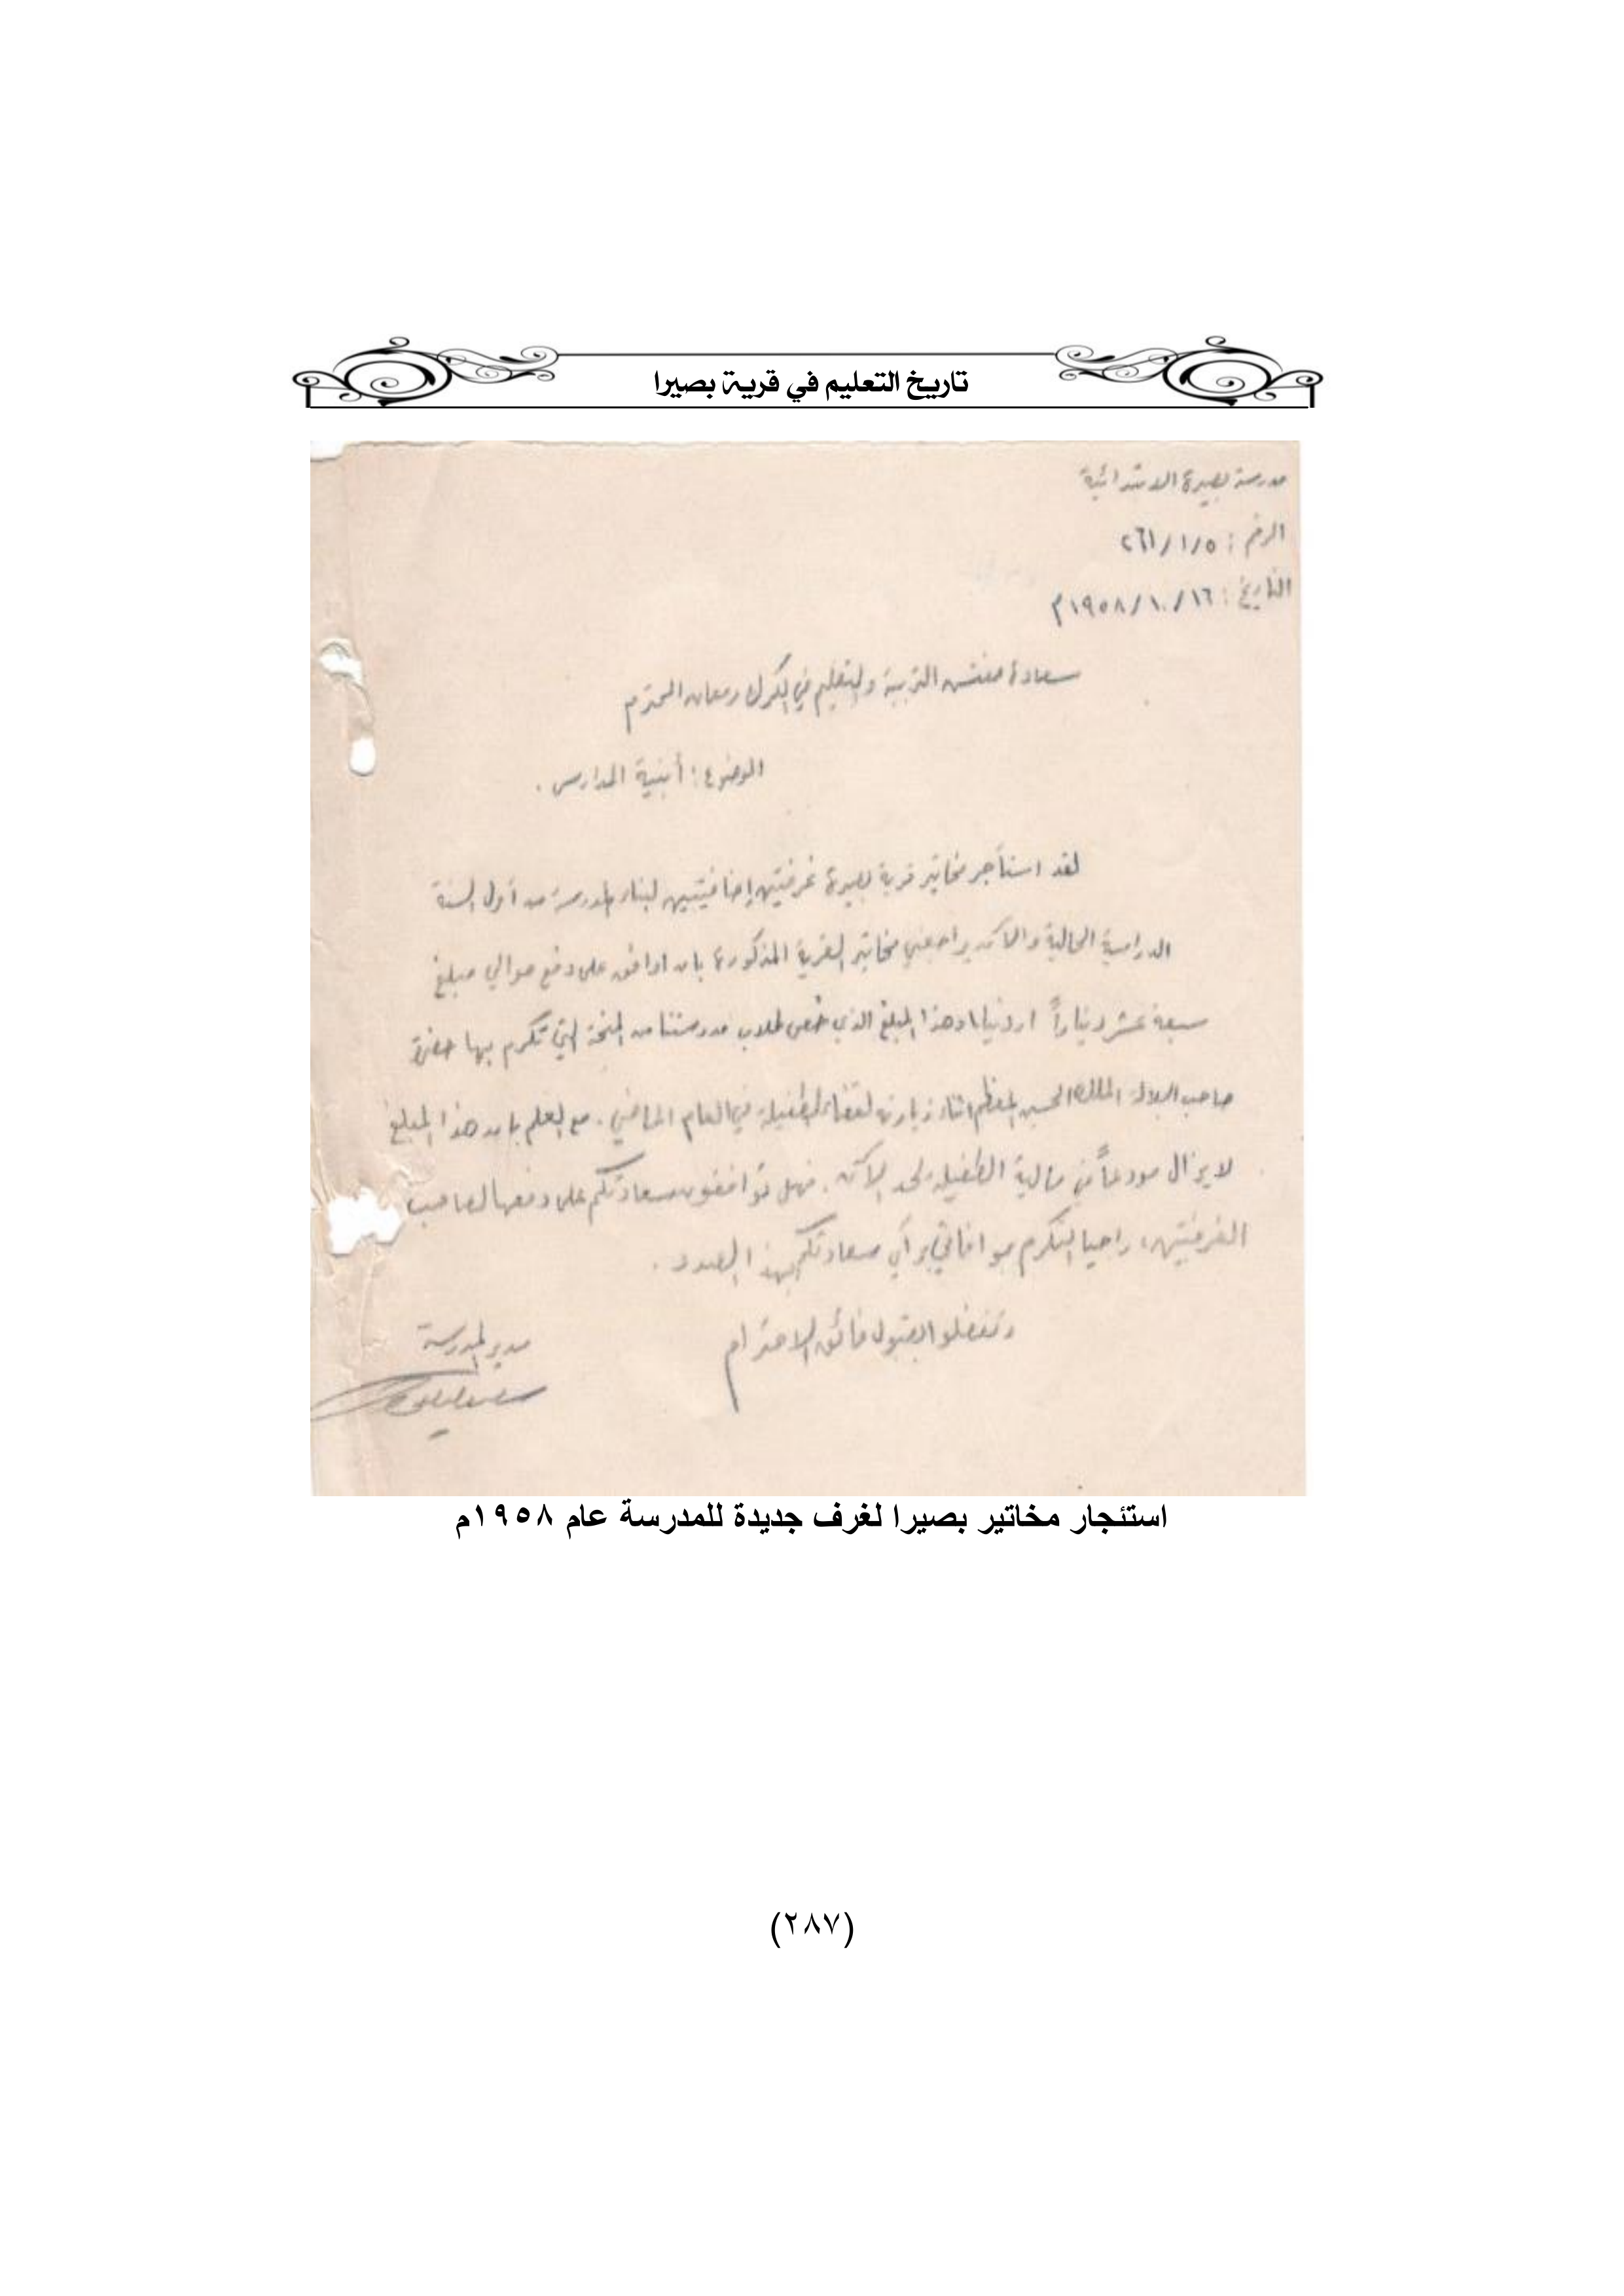 تاريخ التعليم في قرية بصيرا
مدرسة بصيرة الابتدائية
الرقم : ٢٦١/١/٥
التاريخ : ١٩٥٨/١٠/١٦م
سعادة مفتش التربية والتعليم في الكرك ومعان المحترم
الموضوع : أبنية المدارس .
لقد استأجر مخاتير قرية بصيرة غرفتين إضافيتين لبناء المدرسة من أول السنة
الدراسية الحالية والآن يراجعني مخاتير القرية المذكورة بان اوافق على دفع حوالي مبلغ
سبعة عشر ديناراً اردنيا وهذا المبلغ الذي خص طلاب مدرستنا من المنحة التي تكرم بها حضرة
صاحب الجلالة الملك الحسين المعظم اثناء زيارته لقضاء الطفيلة في العام الماضي . مع العلم بان هذا المبلغ
لا يزال مودعاً في مالية الطفيلة لحد الآن . فهل توافقون سعادتكم على دفعها لصاحب
الغرفتين ، راجيا التكرم بموافاتي برأي سعادتكم بهذا الصدد .
وتفضلوا بقبول فائق الاحترام
مدير المدرسة
استئجار مخاتير بصيرا لغرف جديدة للمدرسة عام ١٩٥٨م
(٢٨٧)